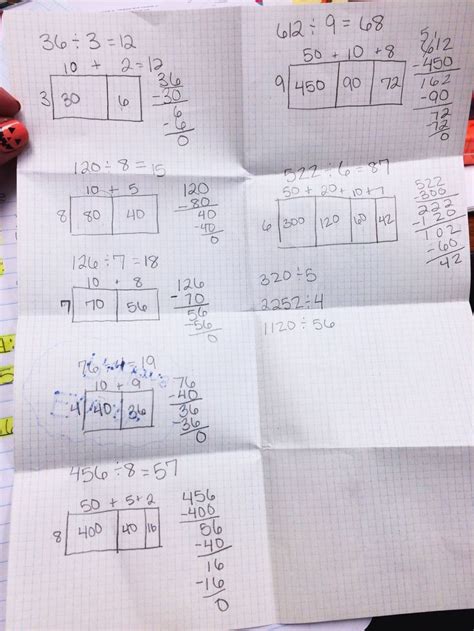 36 ÷ 3 = 12
10 + 2 = 12
3 30 6
36
-30
6
-6
0
120 ÷ 8 = 15
10 + 5
8 80 40
120
-80
40
-40
0
126 ÷ 7 = 18
10 + 8
7 70 56
126
-70
56
-56
0
76 ÷ 4 = 19
10 + 9
4 40 36
76
-40
36
-36
0
456 ÷ 8 = 57
50 + 5 + 2
8 400 40 16
456
-400
56
-40
16
-16
0
612 ÷ 9 = 68
50 + 10 + 8
9 450 90 72
5 1
612
-450
162
-90
72
-72
0
522 ÷ 6 = 87
50 + 20 + 10 + 7
6 300 120 60 42
522
300
222
-120
102
-60
42
320 ÷ 5
2252 ÷ 4
1120 ÷ 56